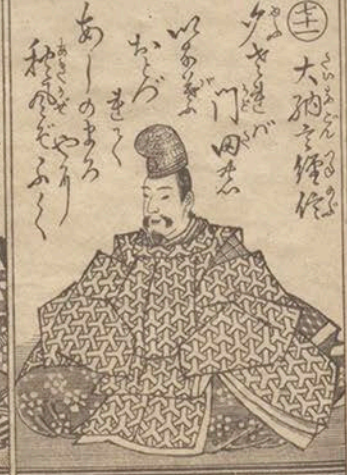 七十一
大納言經信
夕されば
門田の
いな葉
おとづ
れて
あしのまろ
やに
秋風ぞふく